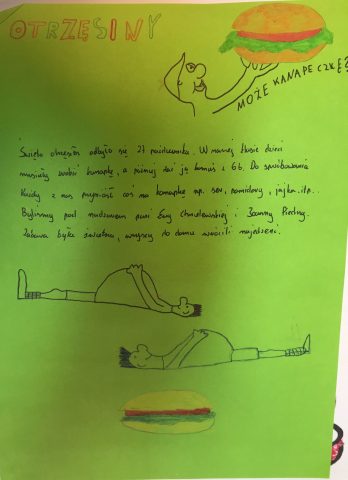 OTRZĘSINY
MOŻE KANAPECZKĘ?
Święto otrzęsin odbyło się 27 października. W naszej klasie dzieci
musiały zrobić kanapkę, a później dać ją komuś z 6b. Do spróbowania
Każdy z nas przyniósł coś na kanapkę np. ser, pomidory, jajka..itp..
Byliśmy pod nadzorem pani Ewy Chmielewskiej i Joanny
Zabawa była świetna, wszyscy do domu wrócili najedzeni.